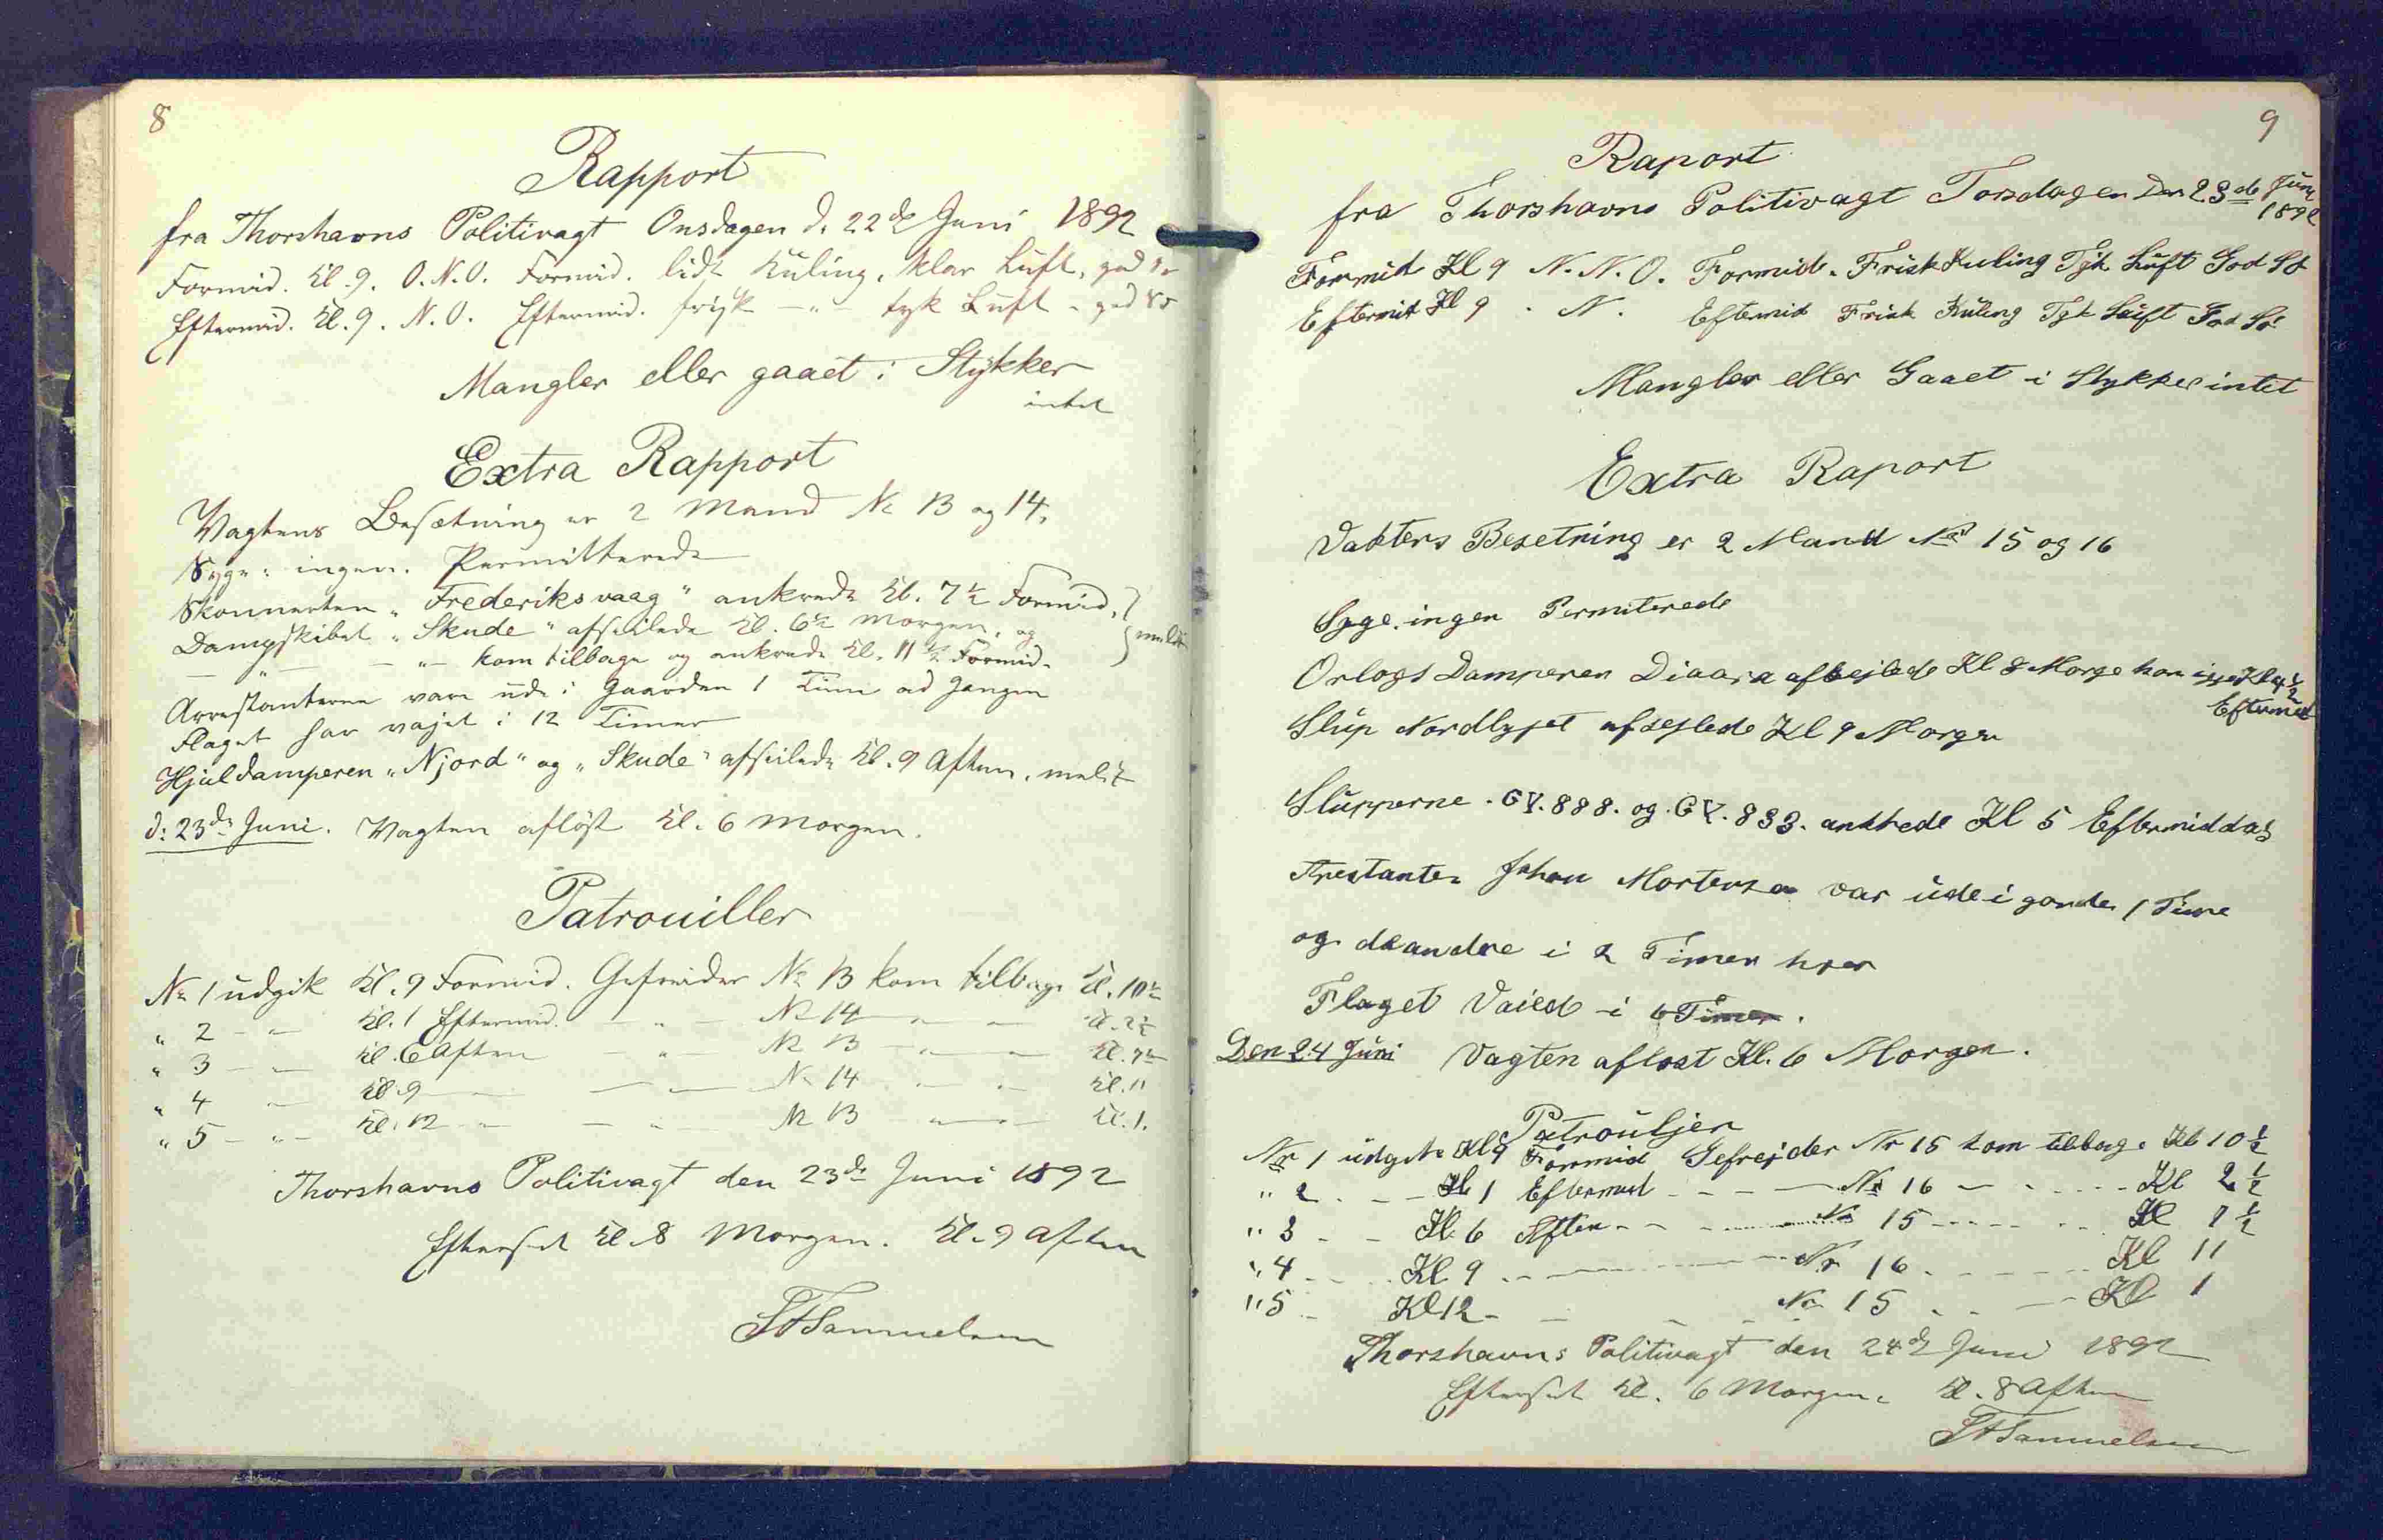 8
Rapport
fra Thorshavns Politivagt Onsdagen d. 22de Juni 1892
Formid. Kl. 9. O.N.O. Formid. lidt Kuling, klar Luft, god Sø
Eftermid. Kl. 9. N.O. Eftermid. frisk —"— tyk Luft - god Sø
Mangler eller gaaet i Stykker
intet
Extra Rapport
Vagtens Besætning er 2 Mand No 13 og 14.
Syge: ingen. Permitterede
Skonnerten „Frederiksvaag" ankrede Kl. 7½ Formid.
Dampskibet „Skude" afseilede Kl. 6½ Morgen, og
— " — - "— kom tilbage og ankrede Kl. 11½ Formid. meldt
Arrestanterne vare ude i Gaarden 1 Time ad Gangen
Flaget har vajet i 12 Timer
Hjuldamperen „Njord" og „Skude" afseilede Kl. 9 Aften, meldt
d: 23de Juni. Vagten afløst Kl. 6 Morgen.
Patrouiller
No 1 udgik Kl. 9 Formid. Gefreider No 13 kom tilbage Kl. 10½
" 2 - — Kl. 1 Eftermid. — " — No 14 — " — Kl. 2½
" 3 - — Kl. 6 Aften — " No 13 — " — Kl. 7½
" 4 — Kl. 9 — — — No 14 — " — Kl. 11
" 5 - " - Kl. 12 — — " — No 13 — " — Kl. 1.
Thorshavns Politivagt den 23de Juni 1892
Efterset Kl. 8 Morgen. Kl. 9 Aften
Samuelsen
9
Raport
fra Thorshavns Politivagt Torsdagen Den 23de Juni
1892
Formid Kl 9 N.N.O. Formid. Frisk Kuling Tyk Luft God Sø
Eftermit Kl 9 . N. Eftermit Frisk Kuling Tyk Luft God Sø
Mangler eller Gaaet i Stykker intet
Extra Raport
Vakters Besetning er 2 Mand No 15 og 16
Syge. ingen Permiterede
Orlogs Damperen Diaana afsejlede Kl 8 Morge kom igje Kl 4½
Eftermid
Slup Nordlyset afsejlede Kl 9 Morgen
Slupperne . GY. 888. og . GY. 833. ankrede Kl 5 Eftermiddag
Arestanten Johan Mortensen var ude i gorden 1 Time
og deandre i 2 Timer hver
Flaget Vaied i 6 Timer.
Den 24 Juni Vagten afløst Kl. 6 Morgen.
Patrouljer
Nr 1 udgik Kl 9 Formid Gefrejder Nr 15 kom tilbage Kl 10½
" 2 . - - Kl 1 Eftermid - - - - Nr 16 - - - - Kl 2½
" 3 - - Kl. 6 Aften - - - - - No 15 - - - - Kl 7½
" 4 - - Kl 9 - - - - - Nr 16 - - - - Kl 11
" 5 - Kl 12 - - - - No 15 - - - Kl 1
Thorshavns Politivagt den 24de Juni 1892
Efterset Kl. 6 Morgen. Kl. 8 Aften
Samuelsen